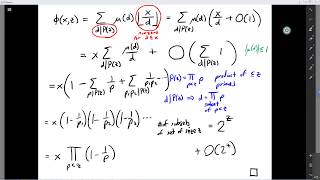 φ(x,z) = Σ_{d|P(z)} μ(d) ⌊x/d⌋ = Σ_{d|P(z)} μ(d) (x/d + O(1))
= x Σ_{d|P(z)} μ(d)/d + O( Σ_{d|P(z)} 1 ) |μ(d)|≤1
= x(1 - Σ_{p|P(z)} 1/p + Σ_{p₁p₂|P(z)} 1/p₁p₂ - ...) P(z) = ∏_{p≤z} p product of primes ≤ z
d|P(z) ⇒ d = ∏ p subset of p≤z
= x(1-1/p₁)(1-1/p₂)(1-1/p₃)... # of subsets of set of size z = 2^z
= x ∏_{p≤z} (1-1/p) + O(2^z)